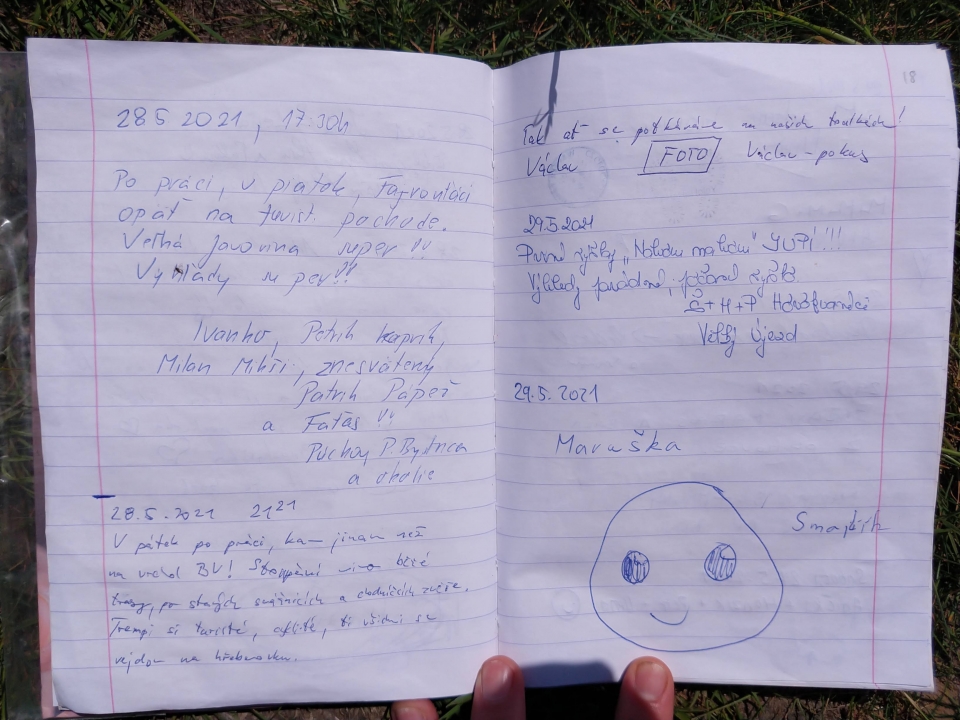 28.5 2021, 17:30h
Po práci, v piatok, Fajrontáci
opäť na turist. pochode.
Veľká Javorina super!!
Výhľady super!!
Ivanko, Petrik
Milan Mikši,
Patrik Papež
a Faťas!!
Púchov, P. Bystrica
a okolie
28.5.2021 21²¹
V pátek po práci, kam jinam než
na vrchol BV! Stoupání mimo běžé
trasy, po starých svážnicích a chodníčcích zvěře.
Trempi si turisté, cyklisté, ti všichni se
vejdou na hřebenovku.
18
Tak ať se potkáváme na našich toulkách!
Václav FOTO Václav - pokus
29.5.2021
První výšlap JUPÍ!!!
Výhledy parádní,
Š+H+P
Velký Újezd
29.5.2021
Maruška
Smajlík